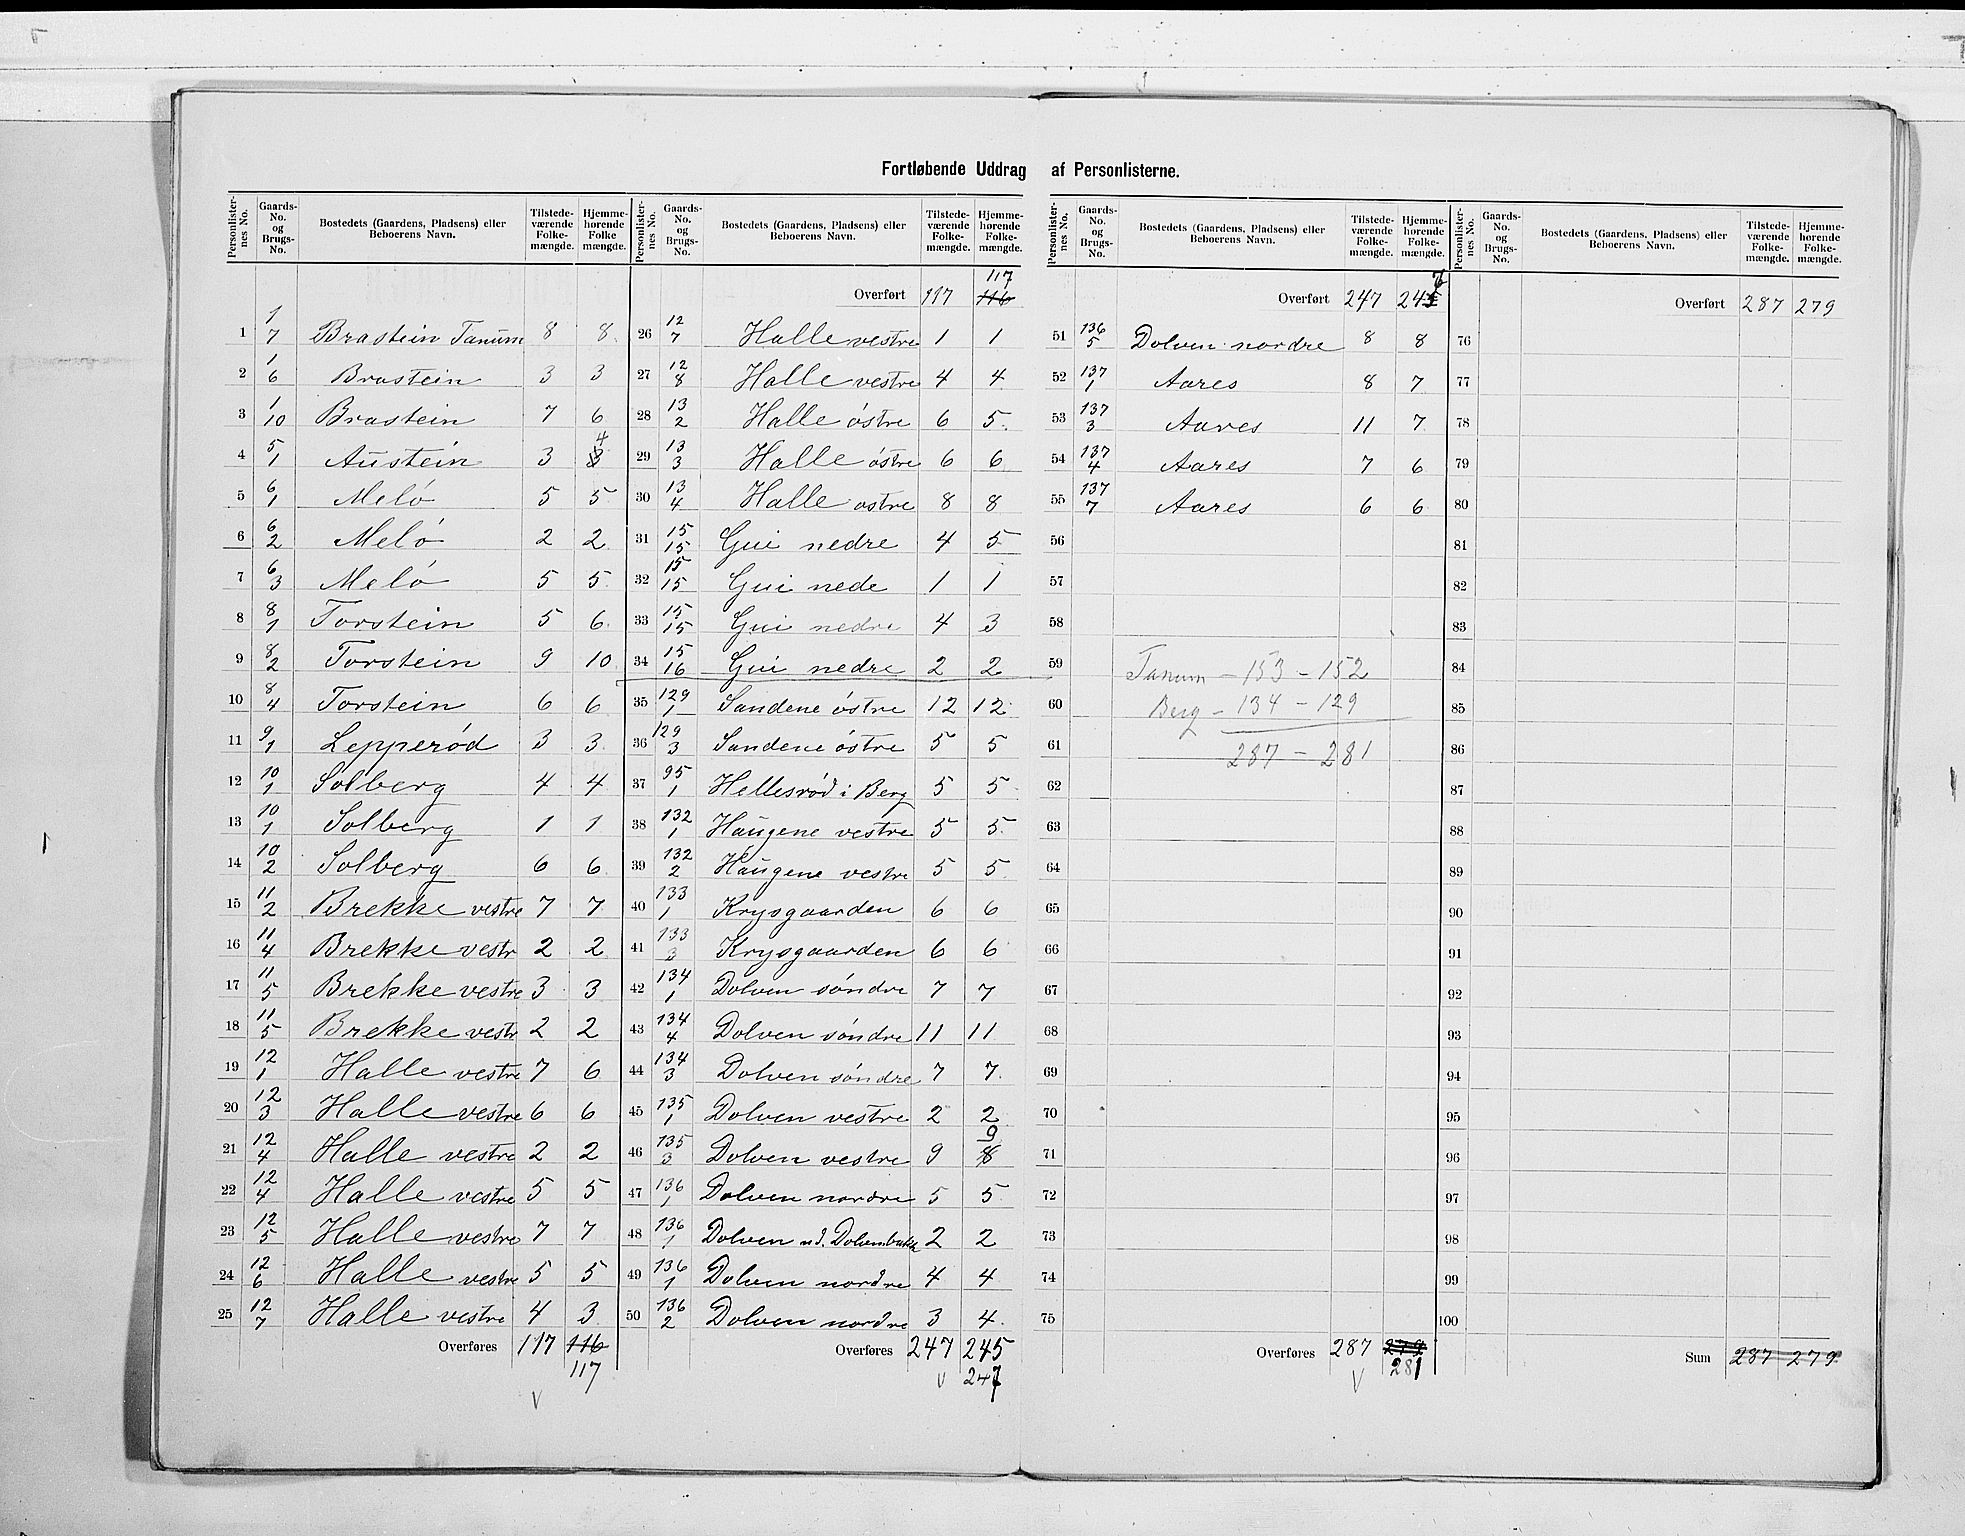 Fortløbende Uddrag af Personlisterne.
Personlisternes No. Gaards-No. og Brugs-No. Bostedets (Gaardens, Pladsens) eller Beboerens Navn. Tilstedeværende Folkemængde. Hjemmehørende Folkemængde.
1 1/7 Brastein Tanum 8 8
2 1/6 Brastein 3 3
3 1/10 Brastein 7 6
4 5/1 Austein 3 4
5 6/1 Melö 5 5
6 6/2 Melö 2 2
7 6/3 Melö 5 5
8 8/1 Torstein 5 6
9 8/2 Torstein 9 10
10 8/4 Torstein 6 6
11 9/1 Lepperød 3 3
12 10/1 Solberg 4 4
13 10/1 Solberg 1 1
14 10/2 Solberg 6 6
15 11/2 Brekke vestre 7 7
16 11/4 Brekke vestr 2 2
17 11/5 Brekke vestre 3 3
18 11/5 Brekke vestr 2 2
19 12/1 Halle vestre 7 6
20 12/3 Halle vestre 6 6
21 12/4 Halle vestre 2 2
22 12/4 Halle vestre 5 5
23 12/5 Halle vestre 7 7
24 12/6 Halle vestre 5 5
25 12/7 Halle vestre 4 3
Overføres 117 116
117
V
Personlisternes No. Gaards-No. og Brugs-No. Bostedets (Gaardens, Pladsens) eller Beboerens Navn. Tilstedeværende Folkemængde. Hjemmehørende Folkemængde.
117
Overført 117 116
26 12/7 Halle vestre 1 1
27 12/8 Halle vestre 4 4
28 13/2 Halle østre 6 5
29 13/3 Halle østre 6 6
30 13/4 Halle østre 8 8
31 15/15 Gui nedre 4 5
32 15/15 Gui nede 1 1
33 15/15 Gui nedre 4 3
34 15/16 Gui nedre 2 2
35 129/1 Sandene östre 12 12
36 129/3 Sandene östre 5 5
37 95/1 Hellesrød i Berg 5 5
38 132/1 Haugene vestre 5 5
39 132/2 Haugene vestre 5 5
40 133/1 Krysgaarden 6 6
41 133/3 Krysgaarden 6 6
42 134/1 Dolven söndre 7 7
43 134/4 Dolven söndre 11 11
44 134/3 Dolven söndre 7 7
45 135/1 Dolven vestre 2 2
46 135/3 Dolven vestre 9 8 9
47 136/1 Dolven nordre 5 5
48 136/1 Dolven nd. Dolvenbakk 2 2
49 136/1 Dolven nordre 4 4
50 136/2 Dolven nordre 3 4
Overføres 247 245
V 247
Personlisternes No. Gaards-No. og Brugs-No. Bostedets (Gaardens, Pladsens) eller Beboerens Navn. Tilstedeværende Folkemængde. Hjemmehørende Folkemængde.
Overført 247 245
51 136/5 Dolven nordre 8 8
52 137/1 Aares 8 7
53 137/3 Aares 11 7
54 137/4 Aares 7 6
55 137/7 Aares 6 6
56
57
58
59 Tanum – 153 – 152
60 Berg – 134 – 129
61 287 – 281
62
63
64
65
66
67
68
69
70
71
72
73
74
75
Overføres 287 279
V 281
Personlisternes No. Gaards-No. og Brugs-No. Bostedets (Gaardens, Pladsens) eller Beboerens Navn. Tilstedeværende Folkemængde. Hjemmehørende Folkemængde.
Overført 287 279
76
77
78
79
80
81
82
83
84
85
86
87
88
89
90
91
92
93
94
95
96
97
98
99
100
Sum 287 279